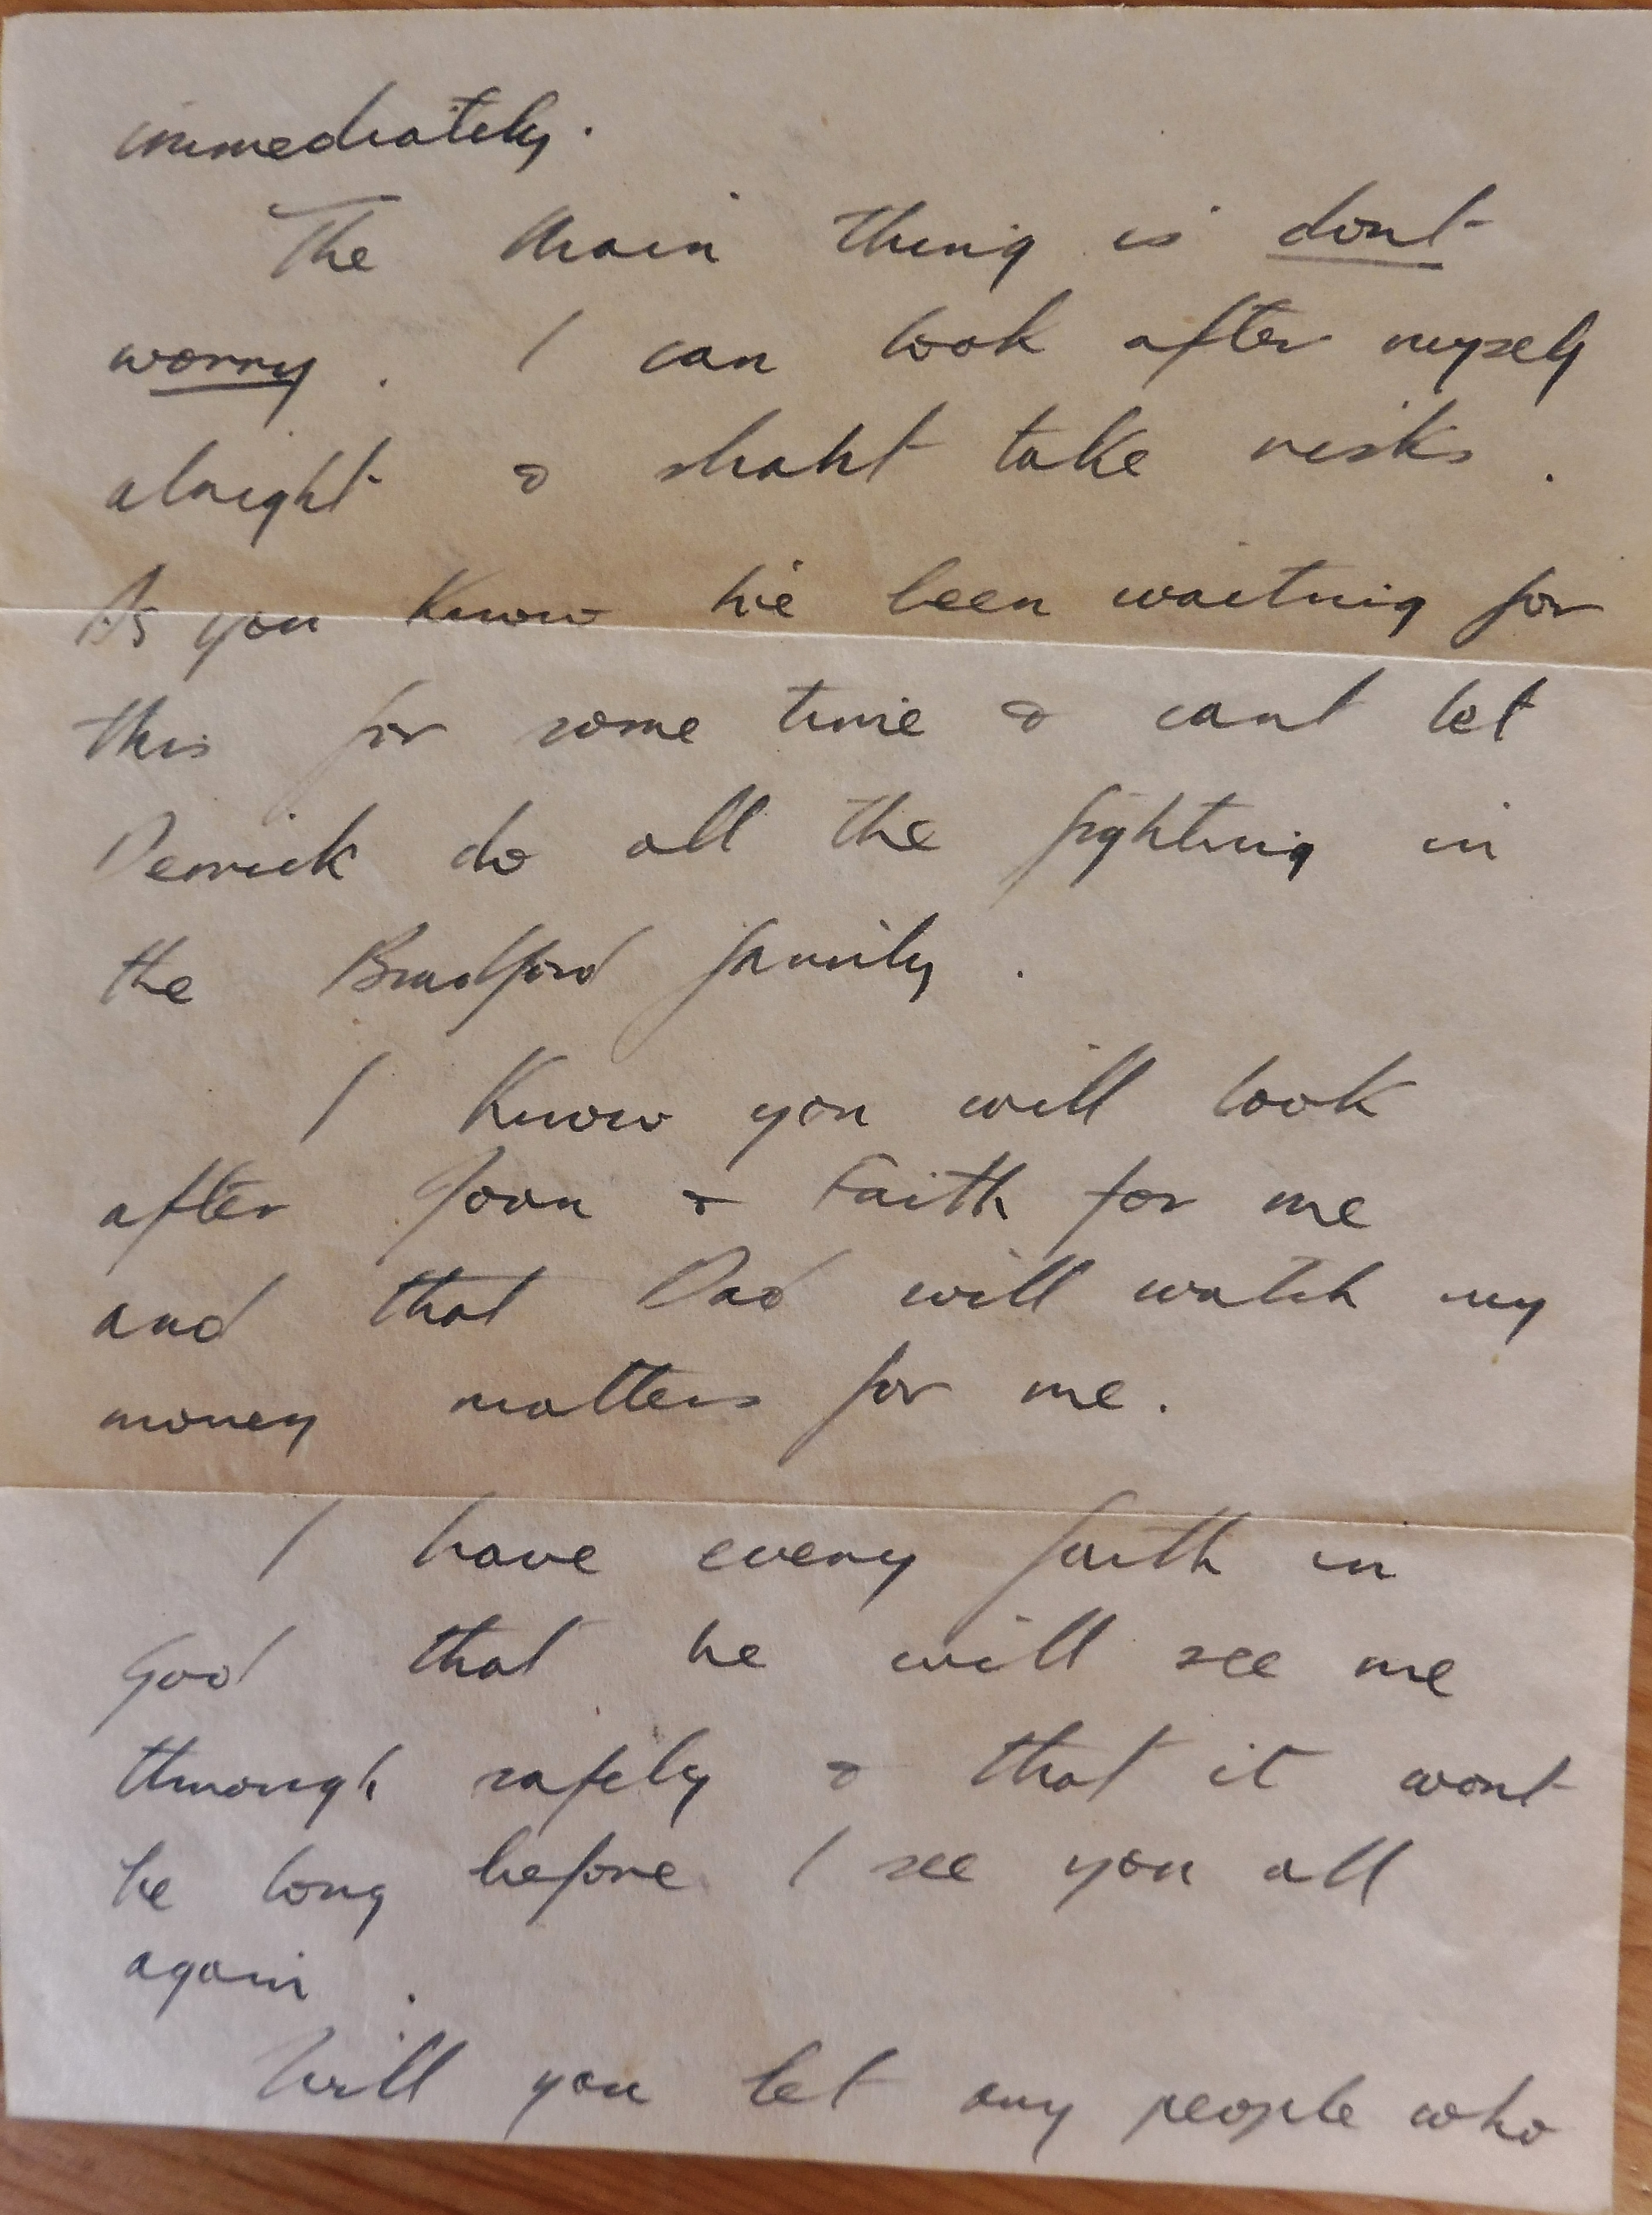 immediately.
The Main thing is dont
worry. I can look after myself
alright & shant take risks.
As you know Ive been waiting for
this for some time & cant let
Derrick do all the fighting in
the Bradford family.
I know you will look
after Joan & Faith for me
and that Dad will watch my
money matters for me.
I have every faith in
God that he will see me
through safely & that it wont
be long before I see you all
again.
Will you let any people who